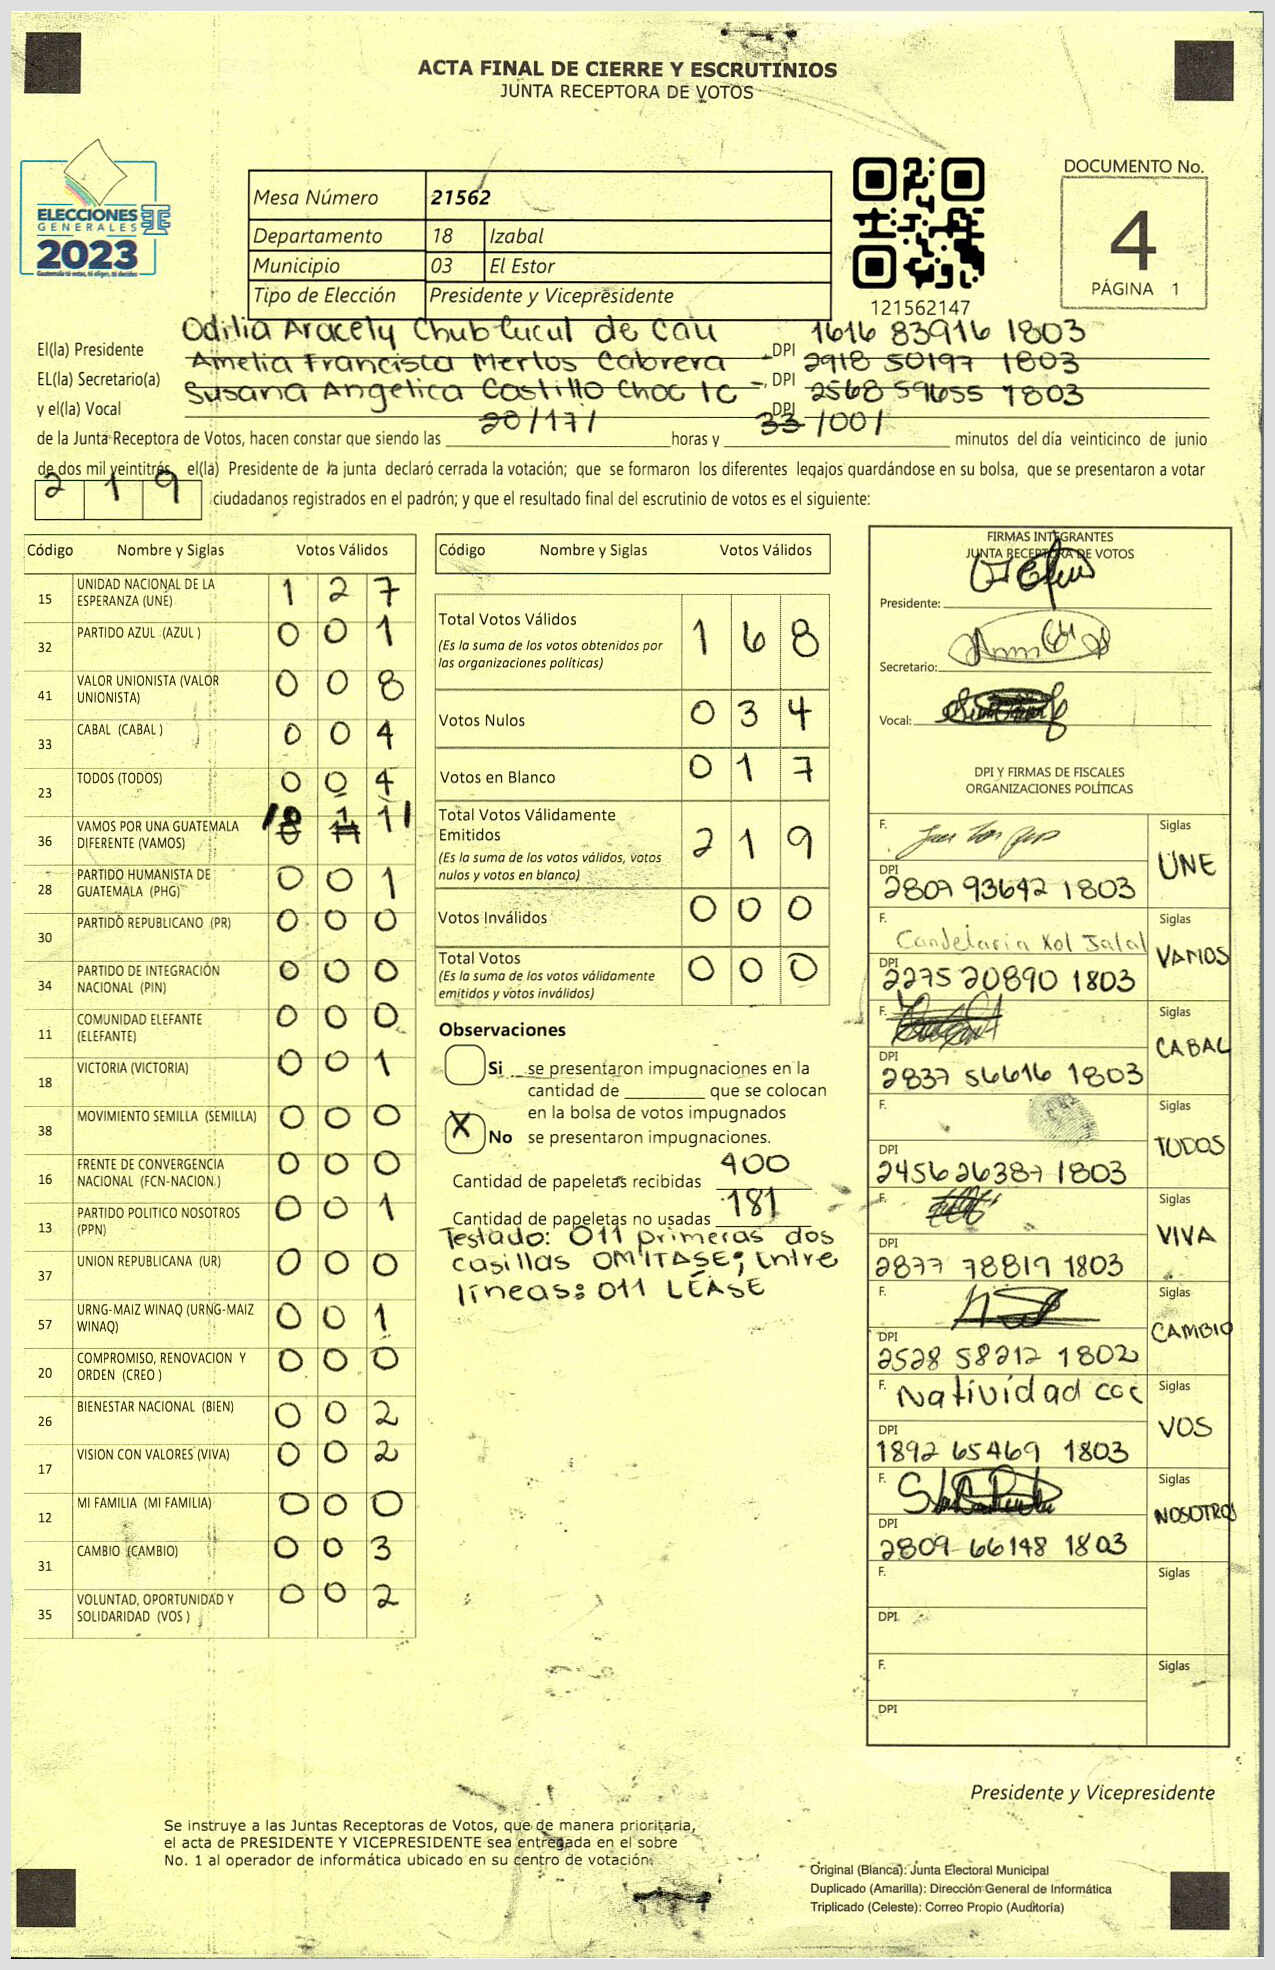 ACTA FINAL DE CIERRE Y ESCRUTINIOS
JUNTA RECEPTORA DE VOTOS
ELECCIONES
GENERALES
2023
Guatemala tú votas, tú eliges, tú decides
Mesa Número 21562
Departamento 18 Izabal
Municipio 03 El Estor
Tipo de Elección Presidente y Vicepresidente
121562147
DOCUMENTO No.
4
PÁGINA 1
El(la) Presidente Odilia Aracely Chub Cucul de Cau DPI 1616 83916 1803
EL(la) Secretario(a) Amelia Francisca Merlos Cabrera DPI 2918 50197 1803
y el(la) Vocal Susana Angelica Castillo Choc IC DPI 2568 59655 1803
de la Junta Receptora de Votos, hacen constar que siendo las 20/17/ horas y 33/00/ minutos del día veinticinco de junio
de dos mil veintitrés, el(la) Presidente de la junta declaró cerrada la votación; que se formaron los diferentes legajos quardándose en su bolsa, que se presentaron a votar
2 1 9 ciudadanos registrados en el padrón; y que el resultado final del escrutinio de votos es el siguiente:
Código Nombre y Siglas Votos Válidos
15 UNIDAD NACIONAL DE LA ESPERANZA (UNE) 1 2 7
32 PARTIDO AZUL (AZUL ) 0 0 1
41 VALOR UNIONISTA (VALOR UNIONISTA) 0 0 8
33 CABAL (CABAL ) 0 0 4
23 TODOS (TODOS) 0 0 4
36 VAMOS POR UNA GUATEMALA DIFERENTE (VAMOS) 0 1 1
28 PARTIDO HUMANISTA DE GUATEMALA (PHG) 0 0 1
30 PARTIDO REPUBLICANO (PR) 0 0 0
34 PARTIDO DE INTEGRACIÓN NACIONAL (PIN) 0 0 0
11 COMUNIDAD ELEFANTE (ELEFANTE) 0 0 0
18 VICTORIA (VICTORIA) 0 0 1
38 MOVIMIENTO SEMILLA (SEMILLA) 0 0 0
16 FRENTE DE CONVERGENCIA NACIONAL (FCN-NACION ) 0 0 0
13 PARTIDO POLITICO NOSOTROS (PPN) 0 0 1
37 UNION REPUBLICANA (UR) 0 0 0
57 URNG-MAIZ WINAQ (URNG-MAIZ WINAQ) 0 0 1
20 COMPROMISO, RENOVACION Y ORDEN (CREO ) 0 0 0
26 BIENESTAR NACIONAL (BIEN) 0 0 2
17 VISION CON VALORES (VIVA) 0 0 2
12 MI FAMILIA (MI FAMILIA) 0 0 0
31 CAMBIO (CAMBIO) 0 0 3
35 VOLUNTAD, OPORTUNIDAD Y SOLIDARIDAD (VOS ) 0 0 2
Código Nombre y Siglas Votos Válidos
Total Votos Válidos 1 6 8
(Es la suma de los votos obtenidos por
las organizaciones políticas)
Votos Nulos 0 3 4
Votos en Blanco 0 1 7
Total Votos Válidamente
Emitidos 2 1 9
(Es la suma de los votos válidos, votos
nulos y votos en blanco)
Votos Inválidos 0 0 0
Total Votos 0 0 0
(Es la suma de los votos válidamente
emitidos y votos inválidos)
Observaciones
Si se presentaron impugnaciones en la
cantidad de ________ que se colocan
en la bolsa de votos impugnados
X No se presentaron impugnaciones.
Cantidad de papeletas recibidas 400
Cantidad de papeletas no usadas 181
Testado: 011 primeras dos
casillas OMITASE; entre
líneas: 011 LÉASE
FIRMAS INTEGRANTES
JUNTA RECEPTORA DE VOTOS
Presidente:
Secretario:
Vocal:
DPI Y FIRMAS DE FISCALES
ORGANIZACIONES POLÍTICAS
F. Siglas UNE
DPI 2807 93642 1803
F. Candelaria Xol Jalal Siglas VAMOS
DPI 2275 20890 1803
F. Siglas CABAL
DPI 2837 56616 1803
F. Siglas TODOS
DPI 2456 26387 1803
F. Siglas VIVA
DPI 2877 78819 1803
F. Siglas CAMBIO
DPI 2528 58212 1802
F. Natividad coc Siglas VOS
DPI 1892 65469 1803
F. Siglas NOSOTROS
DPI 2809 66148 1803
F. Siglas
DPI
F. Siglas
DPI
Presidente y Vicepresidente
Se instruye a las Juntas Receptoras de Votos, que de manera prioritaria,
el acta de PRESIDENTE Y VICEPRESIDENTE sea entregada en el sobre
No. 1 al operador de informática ubicado en su centro de votación.
Original (Blanca): Junta Electoral Municipal
Duplicado (Amarilla): Dirección General de Informática
Triplicado (Celeste): Correo Propio (Auditoria)